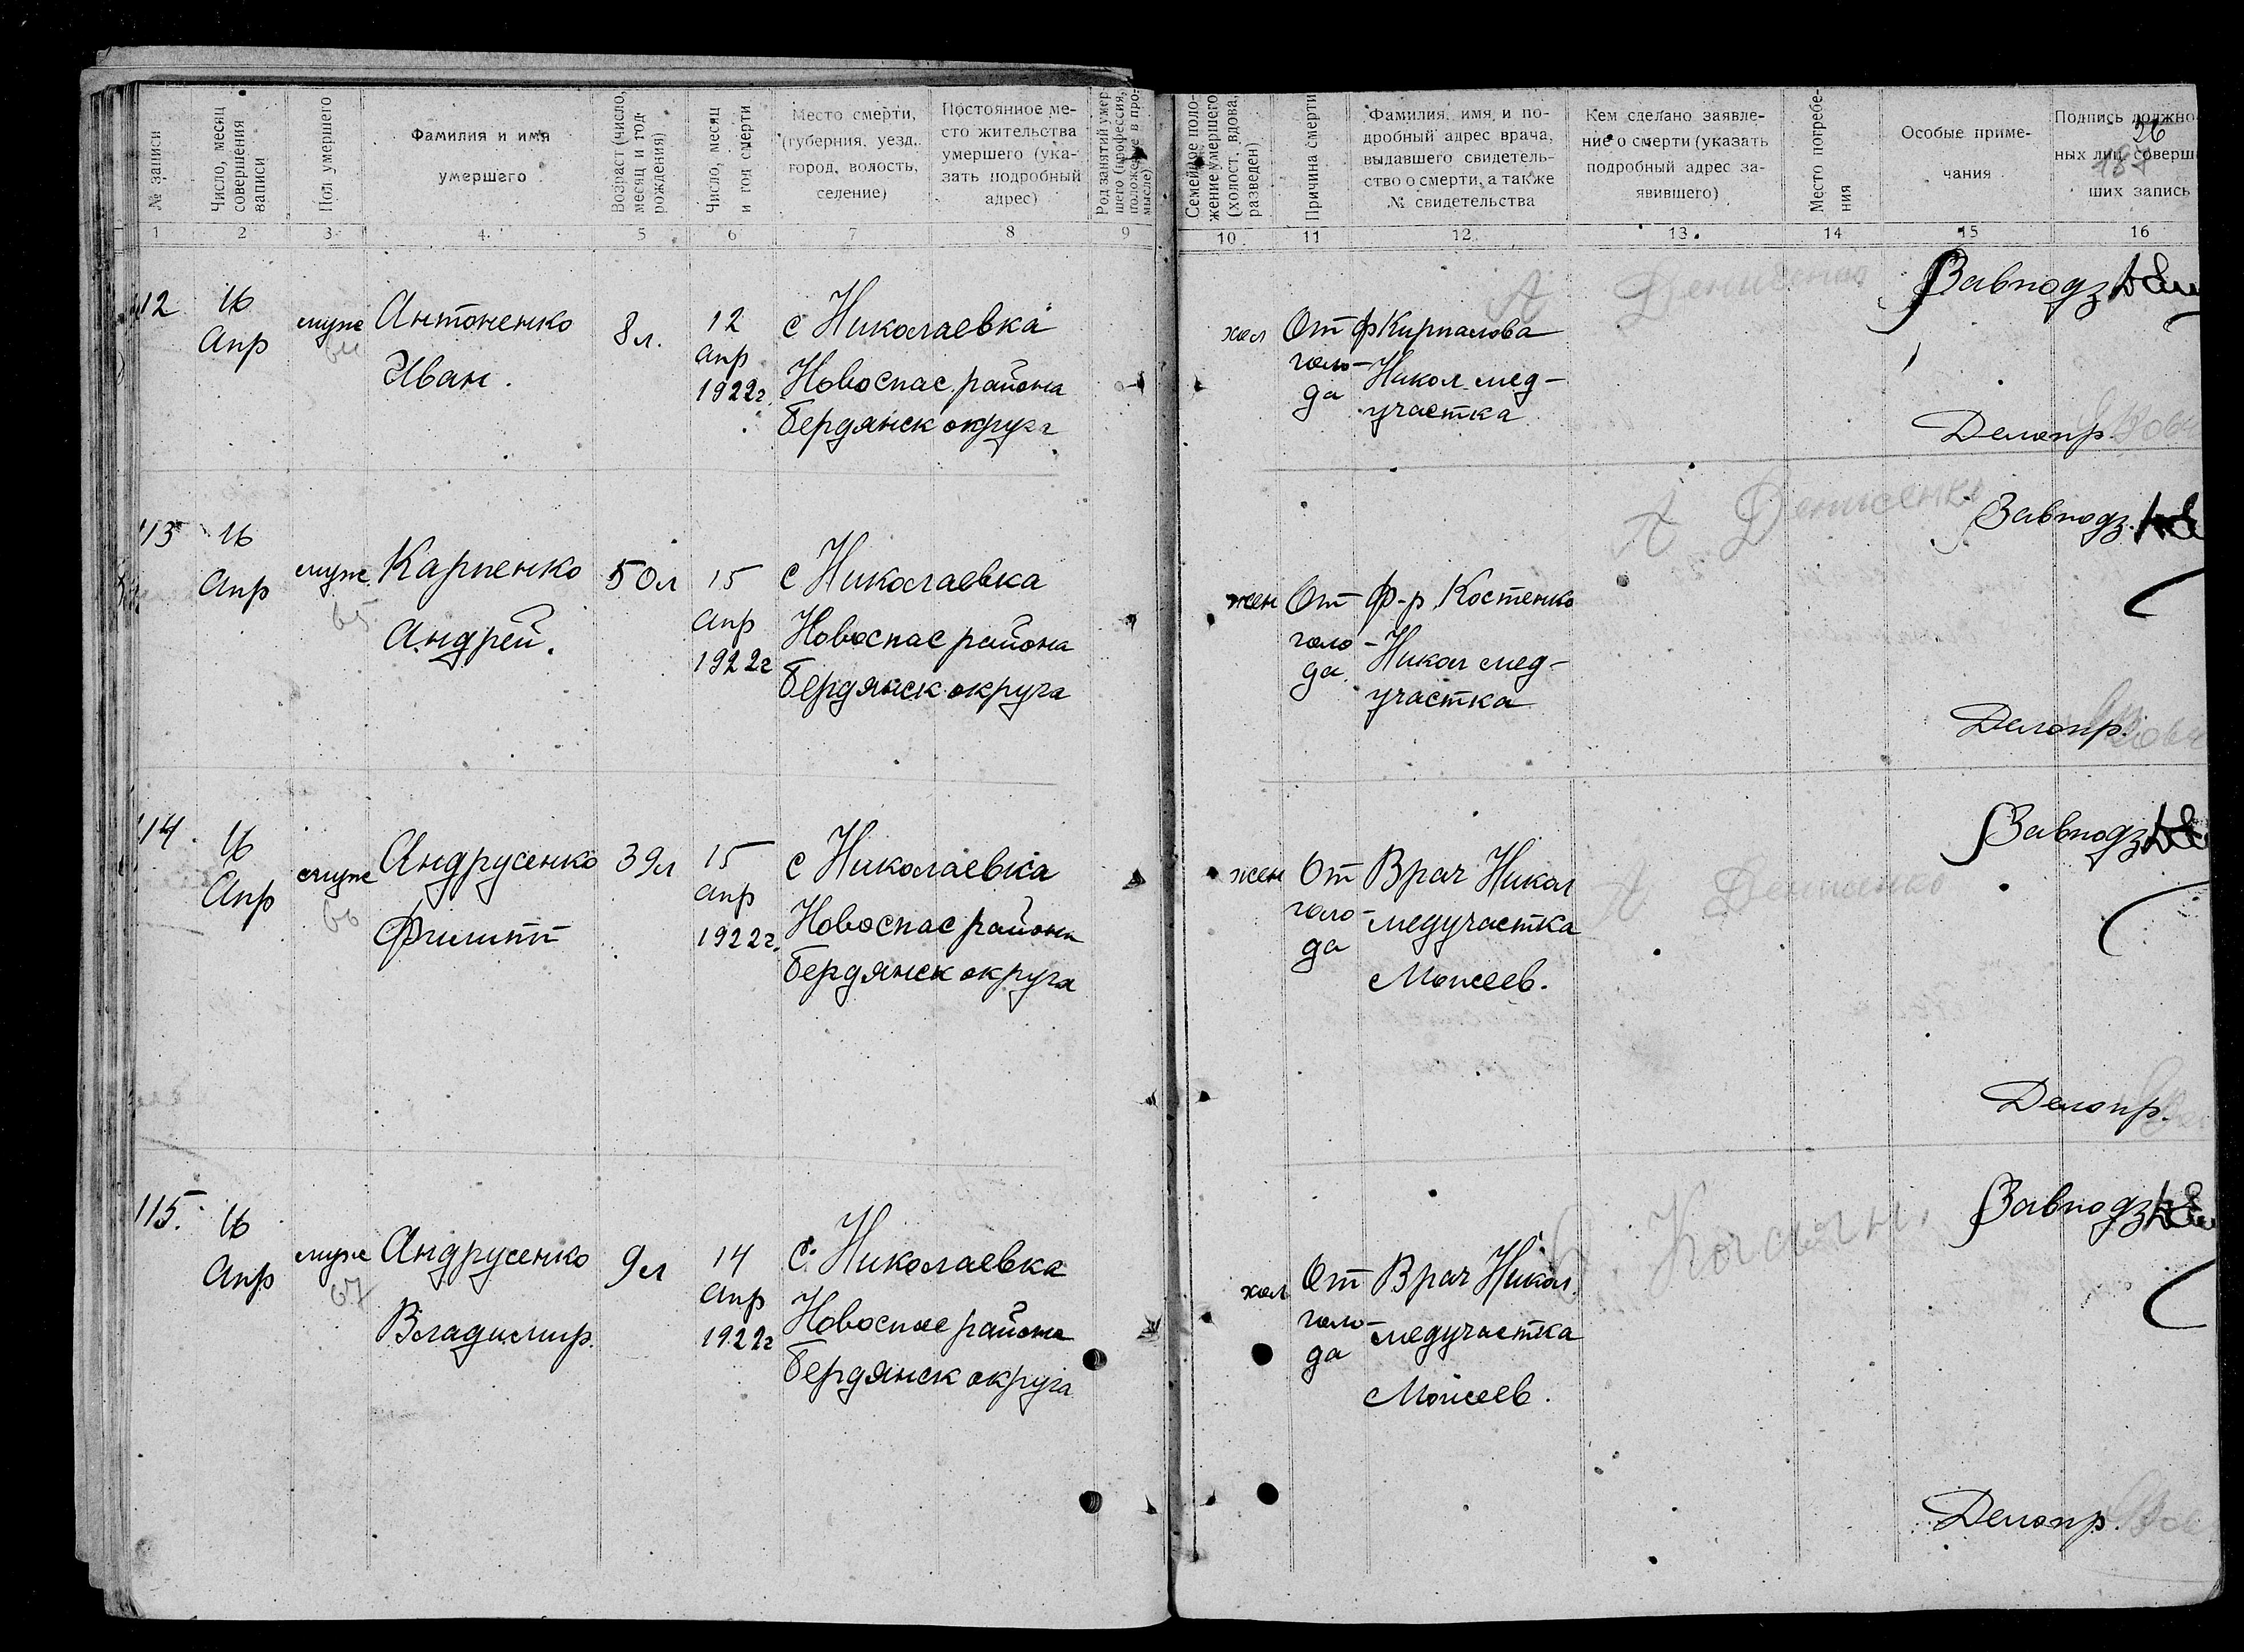 № записи
Число, месяц
совершения
записи
Пол умершего
Фамилия и имя
умершего
Возраст (число,
месяц и год
рождения)
Число, месяц
и год смерти
Место смерти,
(губерния, уезд,
город, волость,
селение)
Постоянное ме-
сто жительства
умершего (ука-
зать подробный
адрес)
Род занятий умер-
шего (профессия,
положение в про-
мысле)
Семейное поло-
жение умершего
(холост, вдова,
разведен)
Причина смерти
Фамилия, имя, и по-
дробный адрес врача,
выдавшего свидетель-
ство о смерти, а также
№ свидетельства
Кем сделано заявле-
ние о смерти (указать
подробный адрес за-
явившего)
Место погребе-
ния
Особые приме-
чания
Подпись должно
ных лиц, соверш
ших запись
26
187
1 2 3 4 5 6 7 8 9 10 11 12 13 14 15 16
112
16
Апр
муж
64
Антоненко
Иван.
8 л.
12
апр
1922г.
с Николаевка
Новоспас. района
Бердянск округа
хол
От
голо-
да
ф Кирпалова
Никол мед-
участка
А Денисенко
Завподз
Делопр.
113
16
Апр
муж
65
Карпенко
Андрей.
50л
15
апр
1922г
с Николаевка
Новоспас района
Бердянск округа
жен
От
голо-
да.
ф-р Костенко
Никол мед-
участка
А Денисенко
Завподз.
Делопр.
114
16
Апр
муж
66
Андрусенко
Филипп
39л
15
апр
1922г.
с Николаевка
Новоспас района
Бердянск округа
жен
От
голо-
да
Врач Никол
медучастка
Моисеев.
А Денисенко
Завподз
Делопр.
115.
16
Апр
муж
67
Андрусенко
Владимир.
9л
14
апр
1922г
с. Николаевка
Новоспас района
Бердянск округа
хол
От
голо-
да
Врач Никол.
медучастка
Моисеев.
Завподз
Делопр.